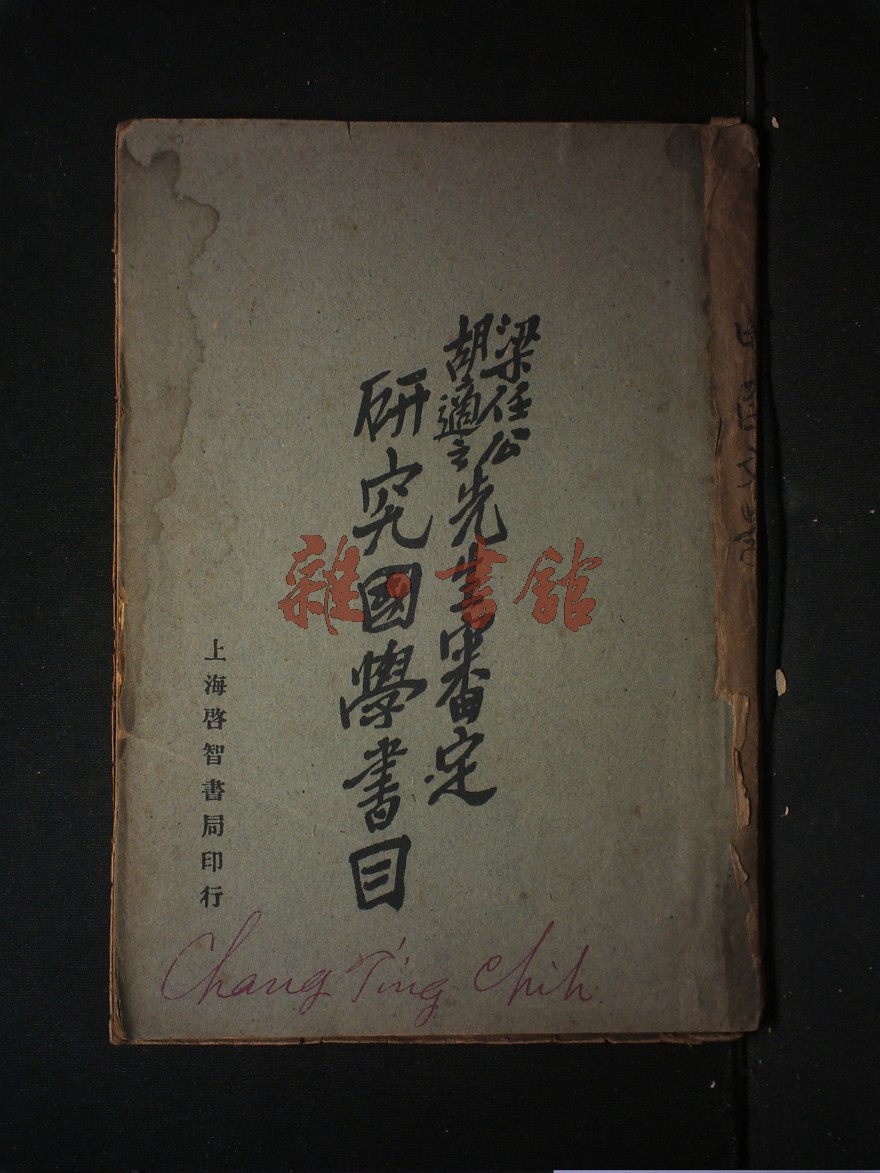 梁任公
胡適之
先生審定
研究國學書目
上海啓智書局印行
Chang Ting Chih
雜·書館